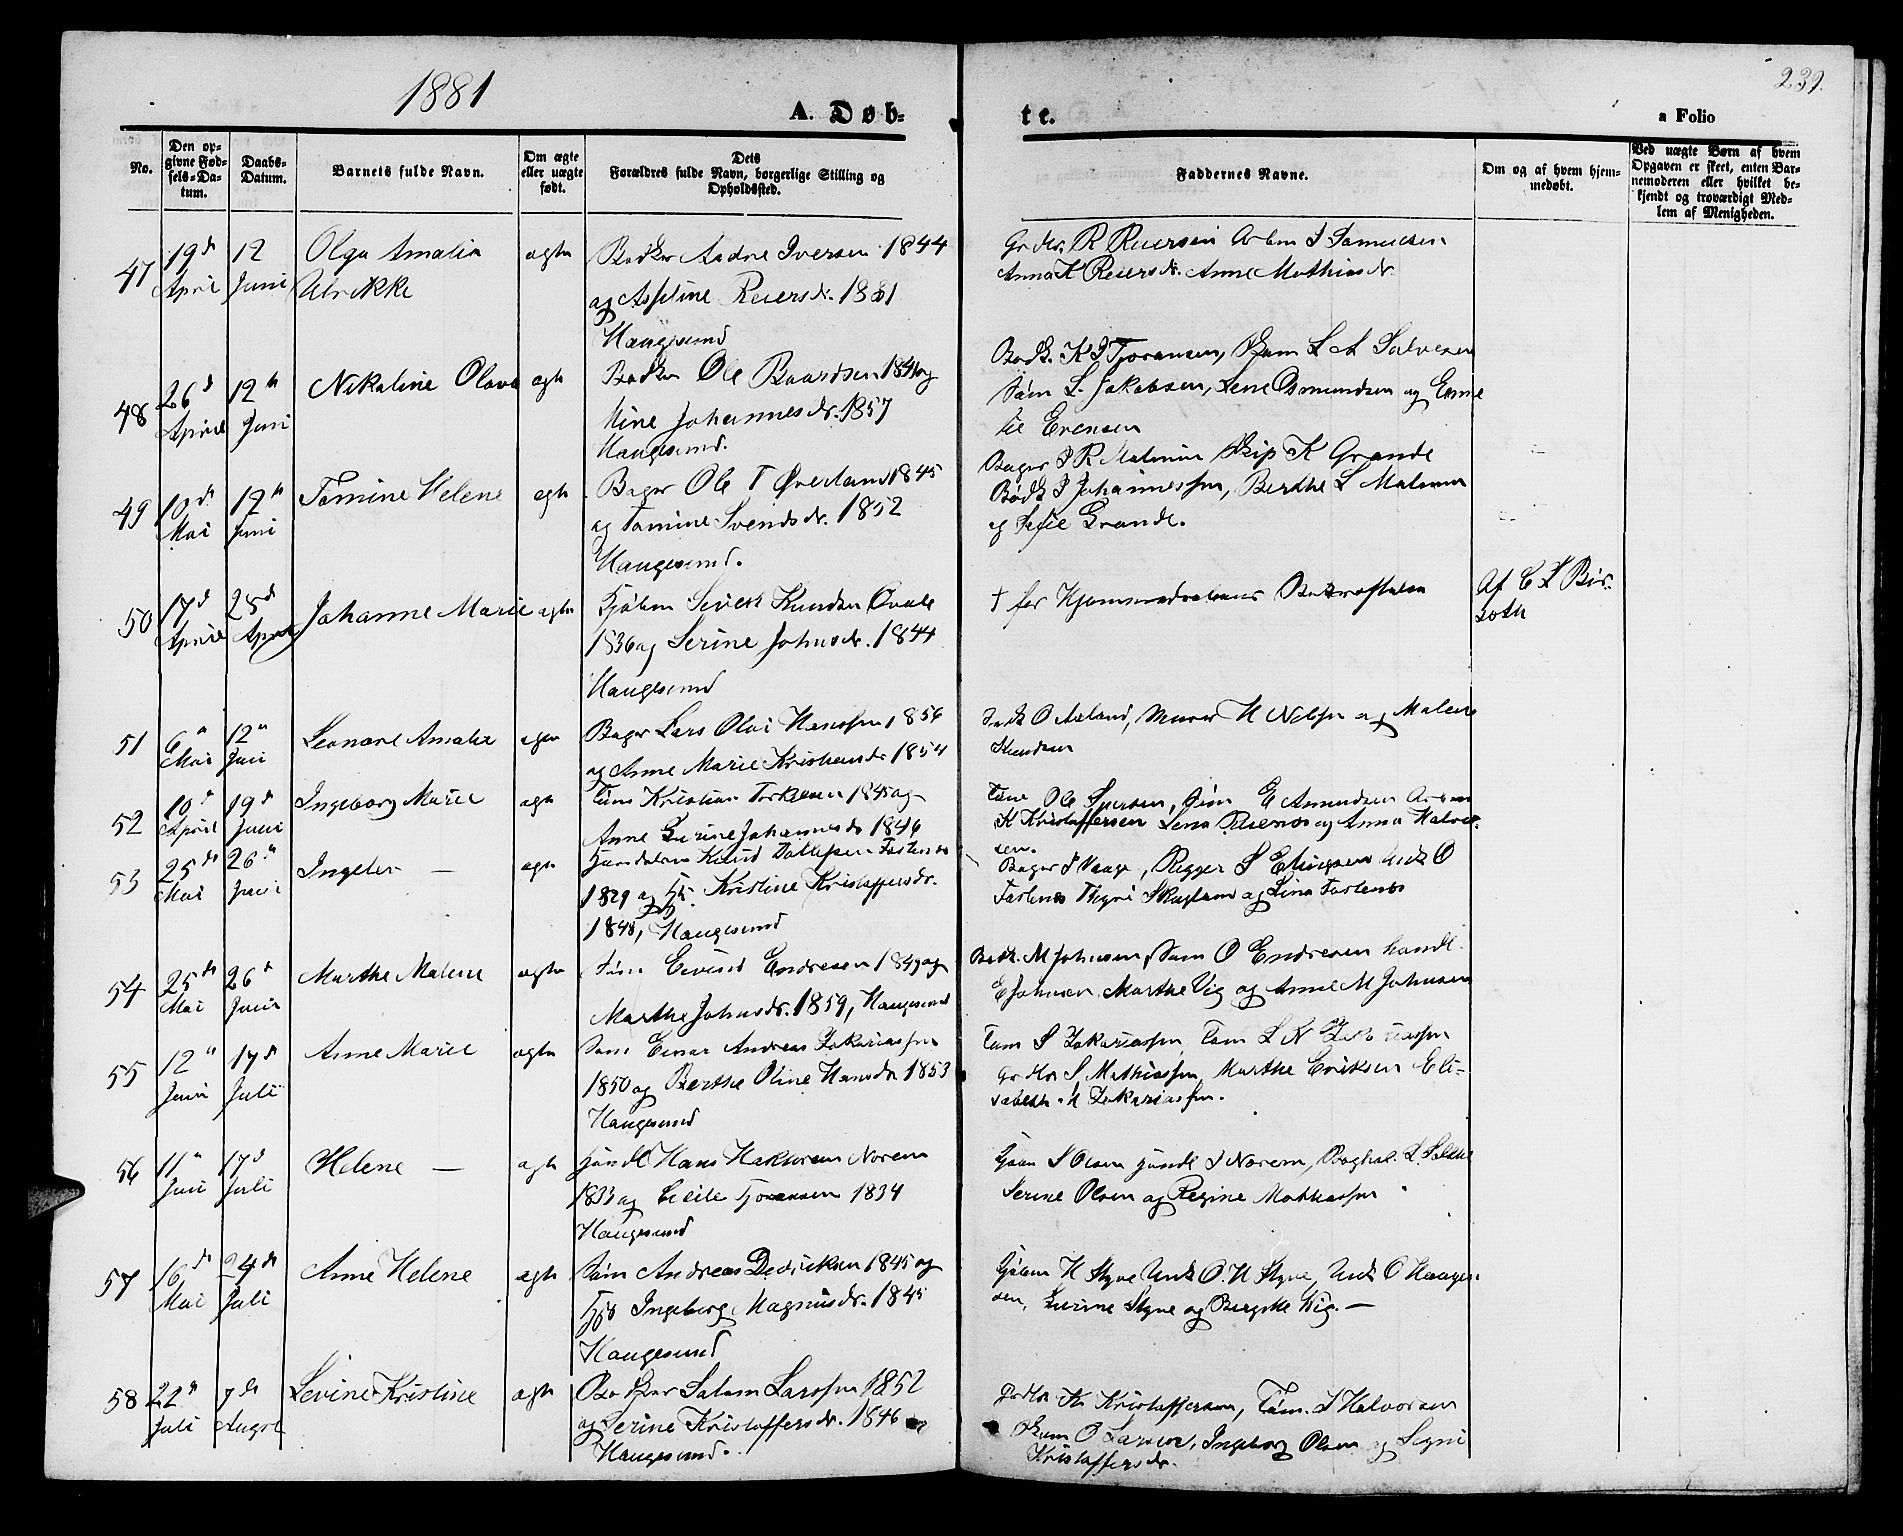 1881
239.
A. Døb-
te.
a Folio
No.
Den op-
givne Fød-
sels-Da-
tum.
Daabs-
Datum.
Barnets fulde Navn.
Om ægte
eller uægte
født.
Dets
Forældres fulde Navn, borgerlige Stilling og
Opholdssted.
Faddernes Navne.
Om og af hvem hjem-
medøbt.
Ved uægte Børn af hvem
Opgaven er skeet, enten Bar-
nemoderen eller hvilket be-
kjendt og troværdigt Med-
lem af Menigheden.
47 19de April 12 Juni Olga Amalia
Ulrikke
ægte
Bødker Andre Iversen 1844
og Asseline Reiersdr. 1881
Haugesund
R Reiersen Arbm S Samuelsen
Anna K Reiersdr. Anne Mathiasdr
48 26de April 12te Juni Nikoline Olava ægte
Bødker Ole Baardsen 1841 og
Stine Johannesdr. 1857
Haugesund.
Bødk. K S Tjoransen, L A Salvesen
Søm L. Jakobsen, Lene Osmundsen og Emme
lie Evensen
49 10de Mai 12te Juni Tomine Helene ægte
Bager Ole T Øverland 1845
og Tomine Svendsdr. 1852
Haugesund.
Bager S R Malmin Skip K Grande
Bødk S Johannessen, Berthe L Malmin
og Sofie Grande.
50 17de April 25de April Johanne Marie ægte
Kjøbm Sivert Knudsen Qvale
1836 og Serine Johnsdr. 1844
Haugesund
† før Hjemmedaabens Bekræftelse
Af E L Bir-
51 6te Mai 12te Juni Leonore Amalie ægte
Bager Lars Olai Hanssen 1856
og Anne Marie Kristiansdr 1854
O Aaland, Murer H Nilsen og Malene
Knudsen
52 10de April 19de Juni Ingeborg Marie ægte
Kristian Torkelsen 1845 og
Anne Gurine Johannesdr 1846
Ole Iversen, Søm E Amundsen
K Kristoffersen Lena og Anna Halvor-
sen.
53 25de Mai 26de Juni Ingeleiv — ægte
Handelsm Knud Tollefsen Fostenes
1829 og Kristine Kristoffersdr.
1848, Haugesund
Bager S Vaage, Rigger S Ellingsen O
Fostenes Skogland og Lina Fostenes
54 25de Mai 26de Juni Marthe Malene ægte
Eivind Endresen 1849 og
Marthe Johnsdr. 1859, Haugesund
Bødk. M Johnsen, Søm O Endresen handl.
E Johnsen, Marthe Vig og Anne M Johnsen
55 12te Juni 17de Juli Anne Marie ægte
Søm Einar Andreas Zakariassen
1850 og Berthe Oline Hansdr 1853
Haugesund
Tøm S Zakariassen, Tøm L N Zakariassen
S Mathiassen, Marthe Eriksen Eli-
sabeth M Zakariassen.
56 11te Juni 17de Juli Helene — ægte
handl Hans Haktorsen Norem
1833 og Cecilie Tjoransen 1834
Haugesund
S Olsen handl S Norem,
Serine Olsen og Regine Mathiassen
57 16de Mai 24de Juli Anne Helene ægte
Søm Andreas Dedricksen 1845 og
Ingeborg Magnusdr. 1845
Haugesund
Kjøbm H Styve Andr O. H Styve, Andr O Haagen-
sen, Gurine Styve og Vig. —
58 22de Juli 7de August Levine Kristine ægte
Salem Larssen 1852
og Serine Kristoffersdr. 1846
Haugesund.
K Kristoffersen, Tøm. S Halvorsen
O Larsen, Ingeborg Olsen og Signi
Kristoffersdr.